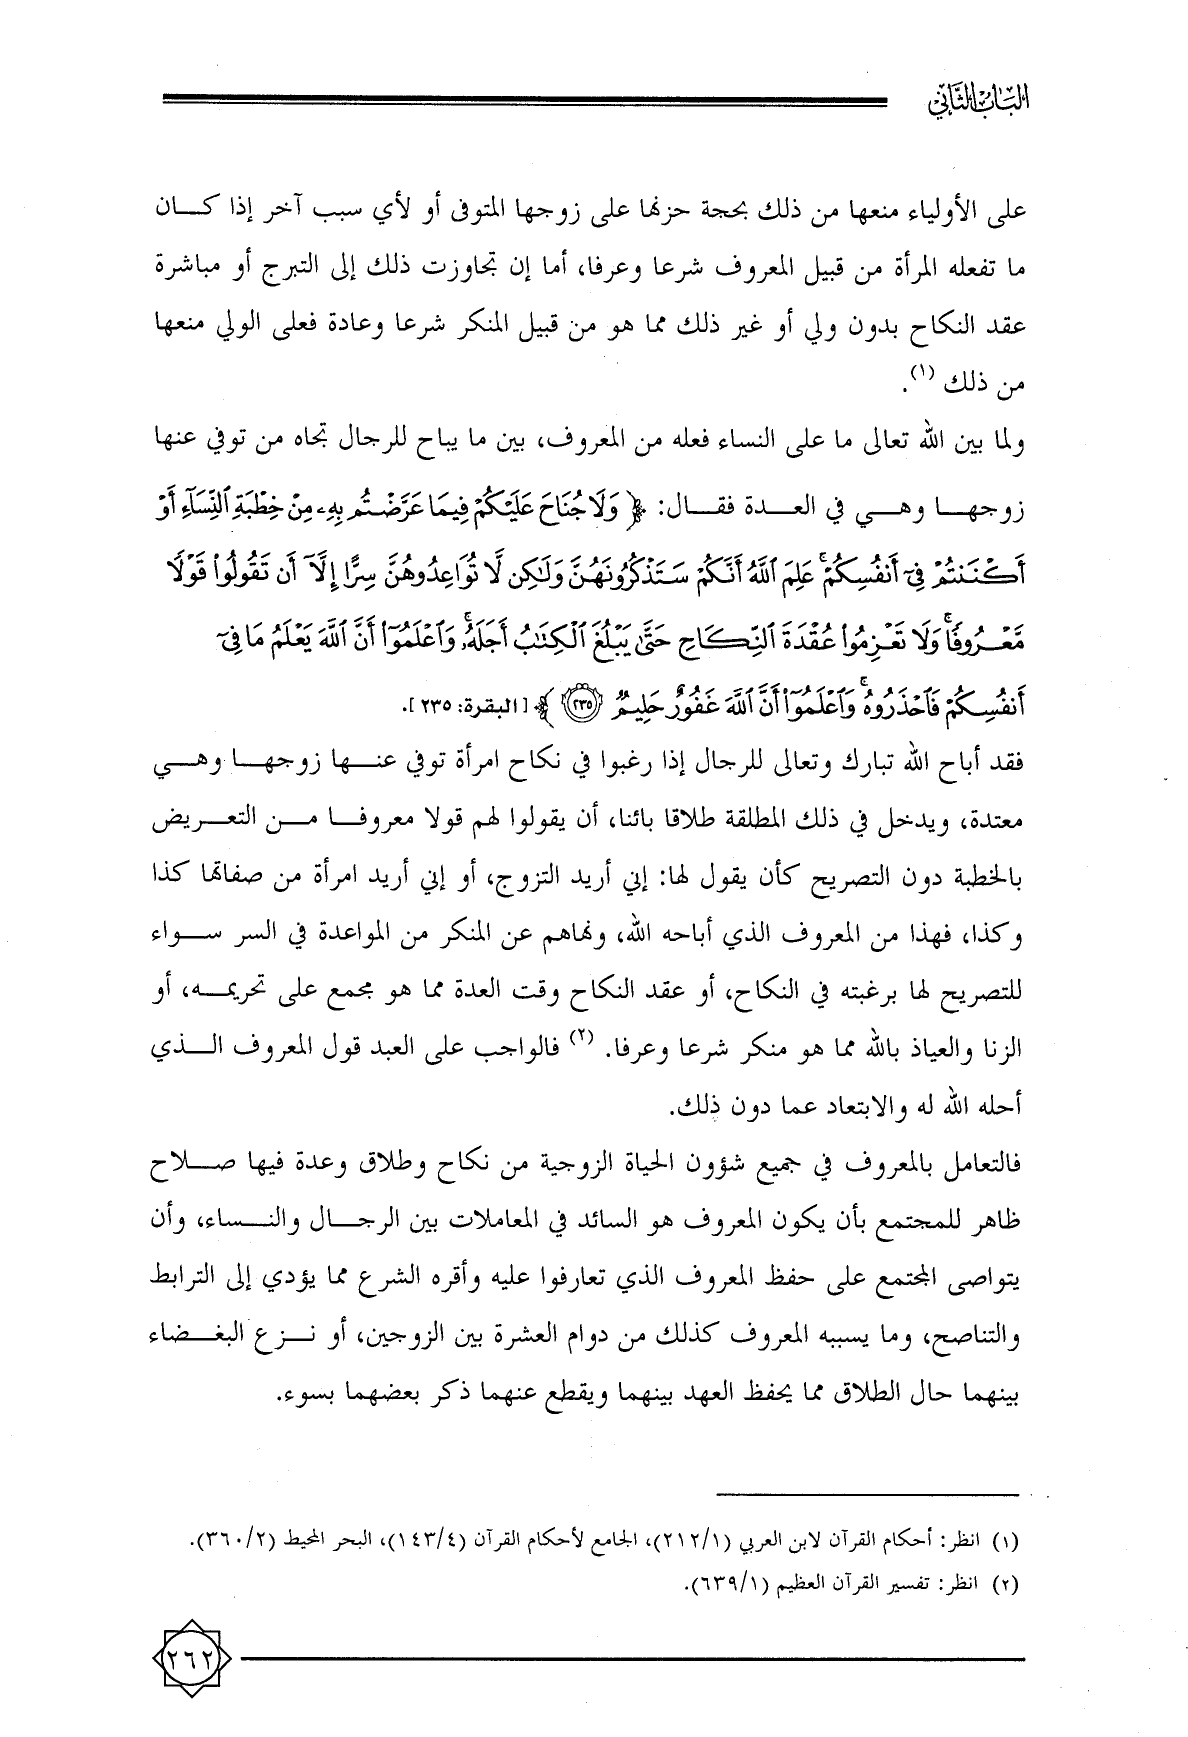 الباب الثاني
على الأولياء منعها من ذلك بحجة حزنها على زوجها المتوفى أو لأي سبب آخر إذا كـــان
ما تفعله المرأة من قبيل المعروف شرعا وعرفا، أما إن تجاوزت ذلك إلى التبرج أو مباشرة
عقد النكاح بدون ولي أو غير ذلك مما هو من قبيل المنكر شرعا وعادة فعلى الولي منعها
من ذلك (١).
ولما بين الله تعالى ما على النساء فعله من المعروف، بين ما يباح للرجال تجاه من توفي عنها
زوجهـــا وهـــي في العـــدة فقـــال: ﴿ وَلَا جُنَاحَ عَلَيْكُمْ فِيمَا عَرَّضْتُم بِهِۦ مِنْ خِطْبَةِ ٱلنِّسَآءِ أَوْ
أَكْنَنتُمْ فِىٓ أَنفُسِكُمْ ۚ عَلِمَ ٱللَّهُ أَنَّكُمْ سَتَذْكُرُونَهُنَّ وَلَٰكِن لَّا تُوَاعِدُوهُنَّ سِرًّا إِلَّآ أَن تَقُولُوا۟ قَوْلًا
مَّعْرُوفًا ۚ وَلَا تَعْزِمُوا۟ عُقْدَةَ ٱلنِّكَاحِ حَتَّىٰ يَبْلُغَ ٱلْكِتَٰبُ أَجَلَهُۥ ۚ وَٱعْلَمُوٓا۟ أَنَّ ٱللَّهَ يَعْلَمُ مَا فِىٓ
أَنفُسِكُمْ فَٱحْذَرُوهُ ۚ وَٱعْلَمُوٓا۟ أَنَّ ٱللَّهَ غَفُورٌ حَلِيمٌ ٢٣٥ ﴾ [البقرة: ٢٣٥].
فقد أباح الله تبارك وتعالى للرجال إذا رغبوا في نكاح امرأة توفي عنـــها زوجهـــا وهـــي
معتدة، ويدخل في ذلك المطلقة طلاقا بائنا، أن يقولوا لهم قولا معروفـــا مـــن التعـــريض
بالخطبة دون التصريح كأن يقول لها: إني أريد التزوج، أو إني أريد امرأة من صفاتها كذا
وكذا، فهذا من المعروف الذي أباحه الله، ونهاهم عن المنكر من المواعدة في السر ســـواء
للتصريح لها برغبته في النكاح، أو عقد النكاح وقت العدة مما هو مجمع على تحريمـــه، أو
الزنا والعياذ بالله مما هو منكر شرعا وعرفا. (٢) فالواجب على العبد قول المعروف الـــذي
أحله الله له والابتعاد عما دون ذلك.
فالتعامل بالمعروف في جميع شؤون الحياة الزوجية من نكاح وطلاق وعدة فيها صـــلاح
ظاهر للمجتمع بأن يكون المعروف هو السائد في المعاملات بين الرجـــال والنـــساء، وأن
يتواصى المجتمع على حفظ المعروف الذي تعارفوا عليه وأقره الشرع مما يؤدي إلى الترابط
والتناصح، وما يسببه المعروف كذلك من دوام العشرة بين الزوجين، أو نـــزع البغـــضاء
بينهما حال الطلاق مما يحفظ العهد بينهما ويقطع عنهما ذكر بعضهما بسوء.
(١) انظر: أحكام القرآن لابن العربي (٢١٢/١)، الجامع لأحكام القرآن (١٤٣/٤)، البحر المحيط (٣٦٠/٢).
(٢) انظر: تفسير القرآن العظيم (٦٣٩/١).
٢٦٢